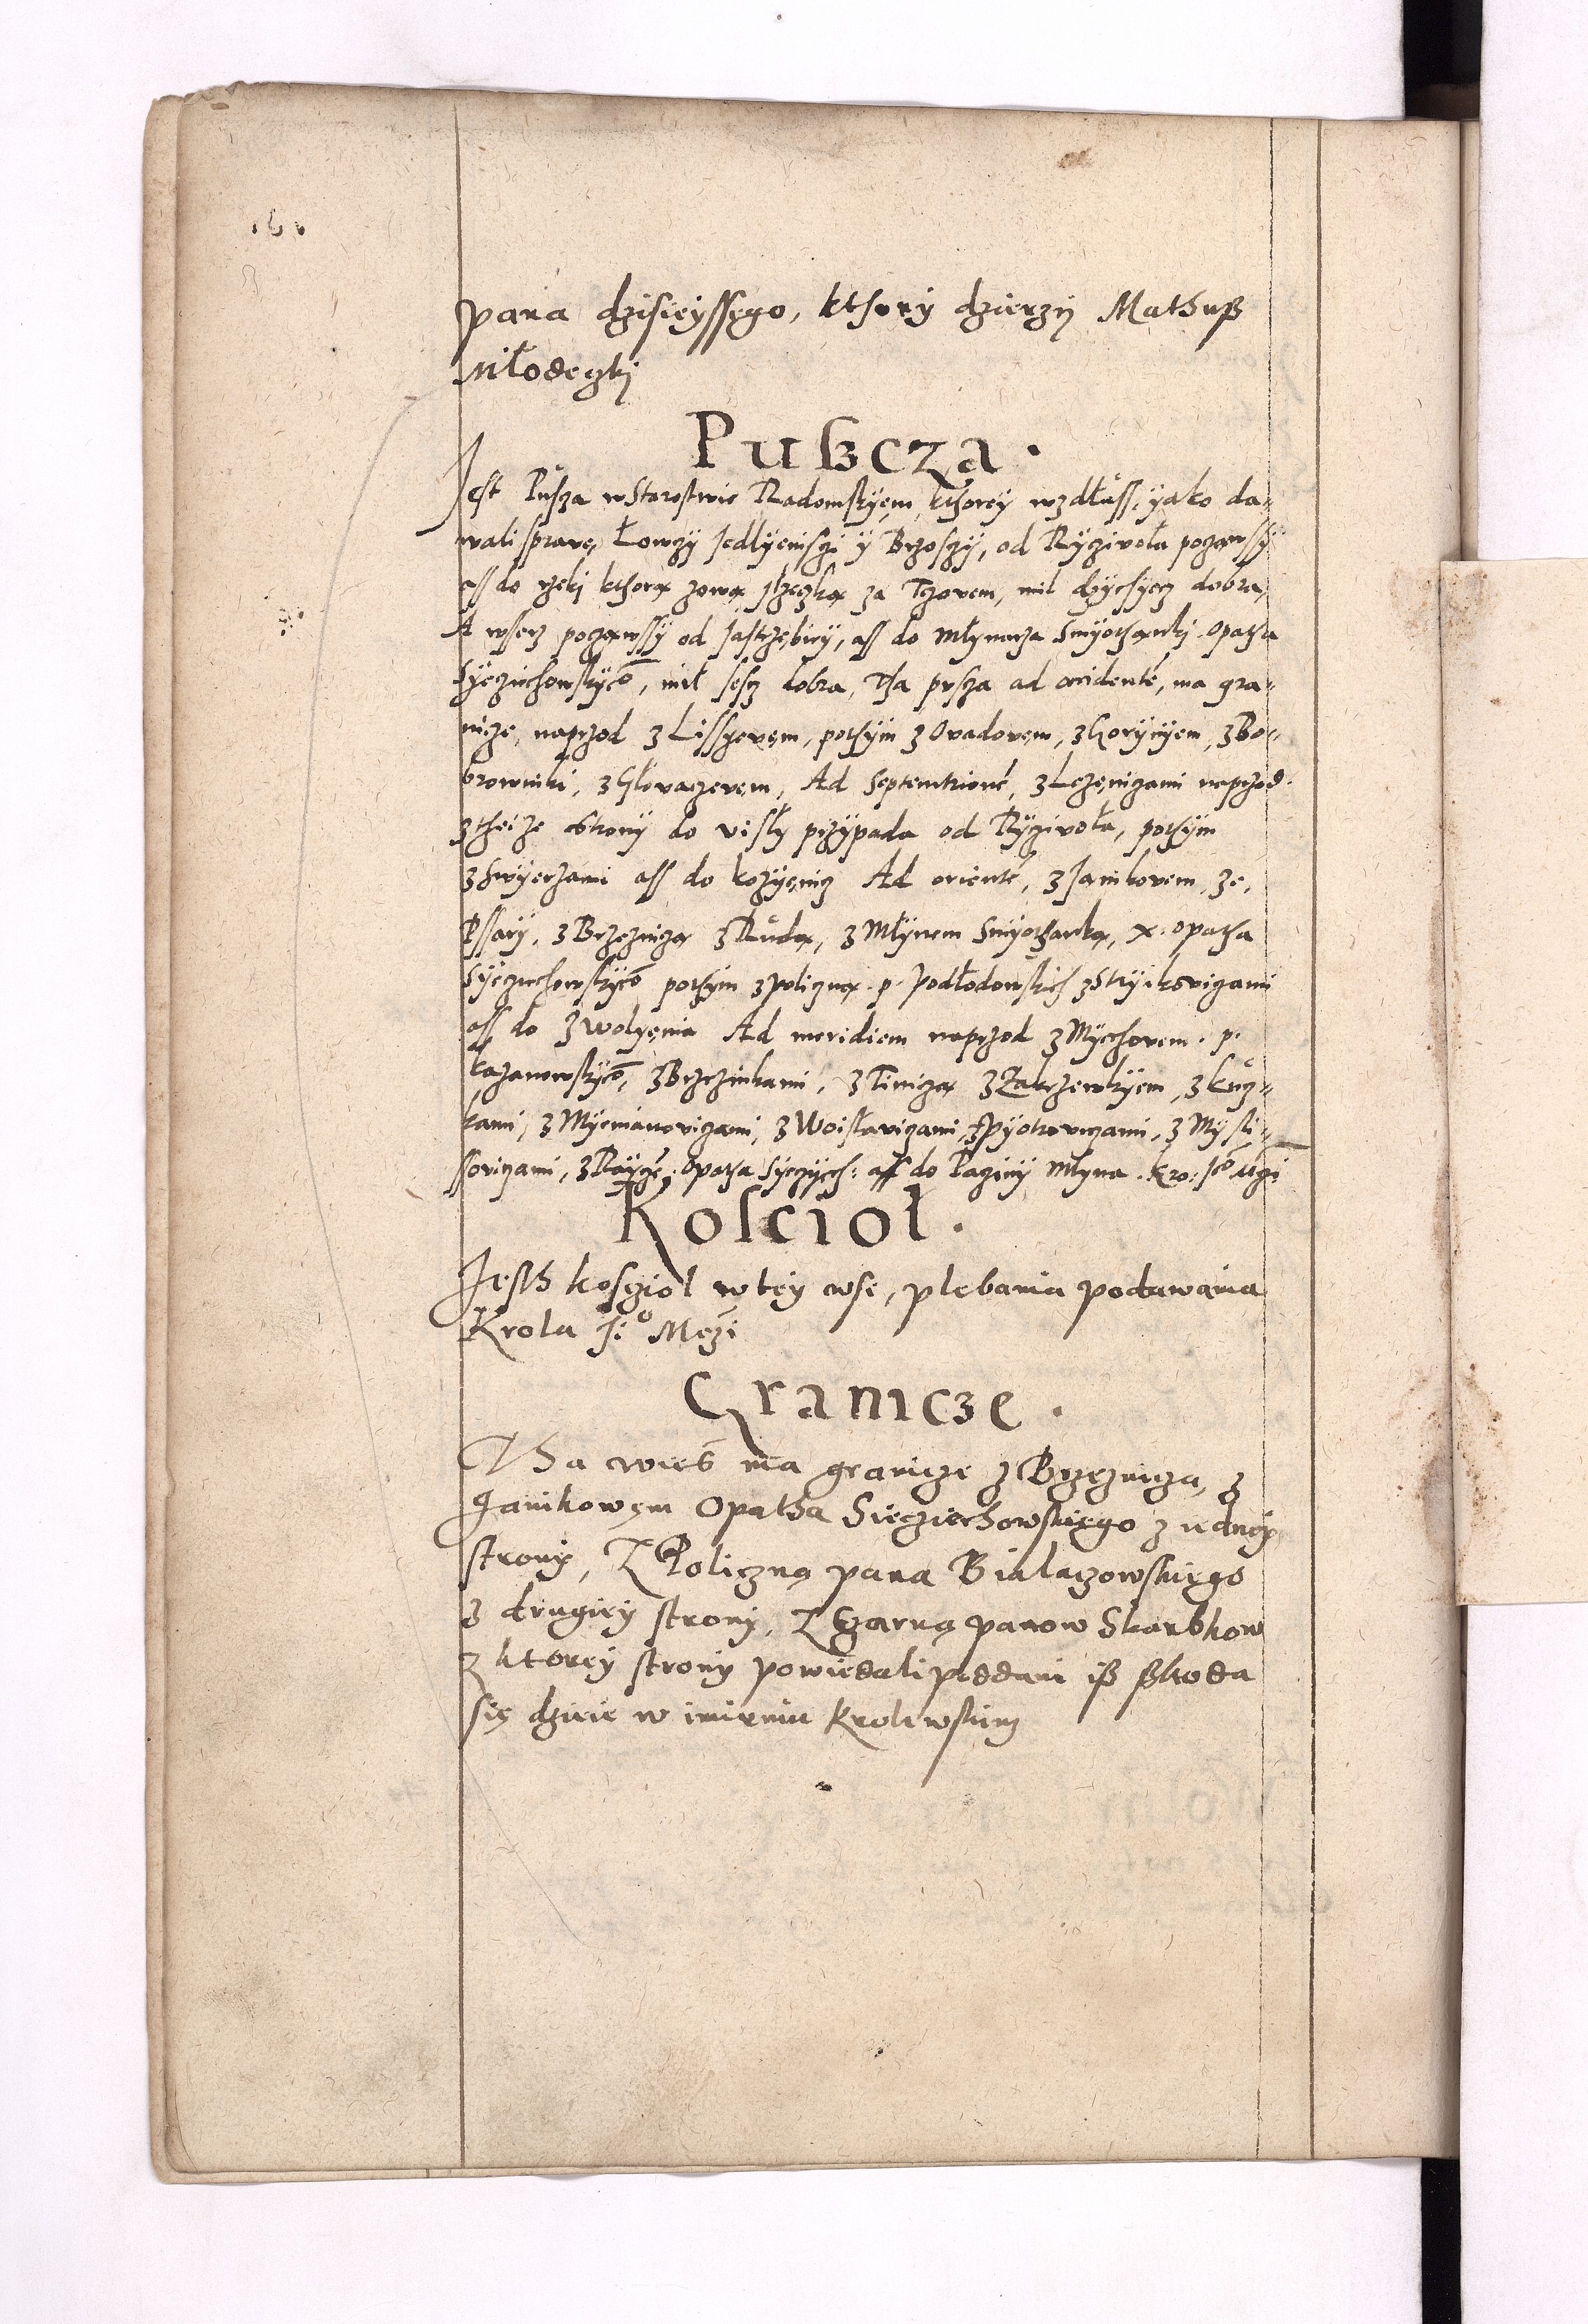 pana dzisieyssęgo, kthory dzierzy Mathuß
Miłodeczki
Pußcza.
Jest Pusza w Starostwie Radomskyem, kthorey wzdłuss, yako da-
wali spravę, Łowczy Jedlyeniszi y Brzoszy, od Ryczivoła poczawssy
ass do rzeki kthora zowa jłzeczka za Tczovem, mil dzyesyecz dobra,
A wserz poczawssy od Jastrzębiey, ass do Młynarza Smyotharki Opatha
Syecziechowskyeo, mil sesz dobra, Tha pusza ad occidentē, ma gra-
nicze, naprzod z Lissyevem, pothym z Ovadovem, z Goryniem, z Bo-
browniki, z Głovaczevem, Ad Septentrionē, z Lezenicami naprzod
z theize strony do visły przypada od Ryczivoła, pothym
z Swyerzami ass do kozyenicz Ad orientē, z Janikovem, ze
Pssary, z Brzeznicza z Ruda, z Młynem Smyotharka, x. opatha
Syeczechowskyeo pothym z policzna p. Podłodowskich z Strykovicami
ass do Zwolyenia Ad meridiem naprzod z Myechovem. p.
kazanowskyeo, z Brzezinkami, z Tinicza z Zakrzewkyem, z kucz-
kami, z Mycinanovicami, z Woisłavicami, z Pyotrovicami, z Mysli-
ssovicami, z Rayczē, Opatha Syeczyech: ass do Paciny Młyna. kro: Jeo Mczi
Kosciol.
Jesth kosziol w tey wsi, plebania podawania
Krola Ji° Mczi
Granicze.
Tha wies ma granicze z Brzeznicza, z
Janikowęm Opatha Siecziechowskięgo z iednęy
strony, Z Policzną pana Bialaczowskięgo
z drugiey strony, Z Czarną panow Skarbkow
z ktorey strony powiedali poddani iß ßkoda
się dzieie w imieniu krolewskim